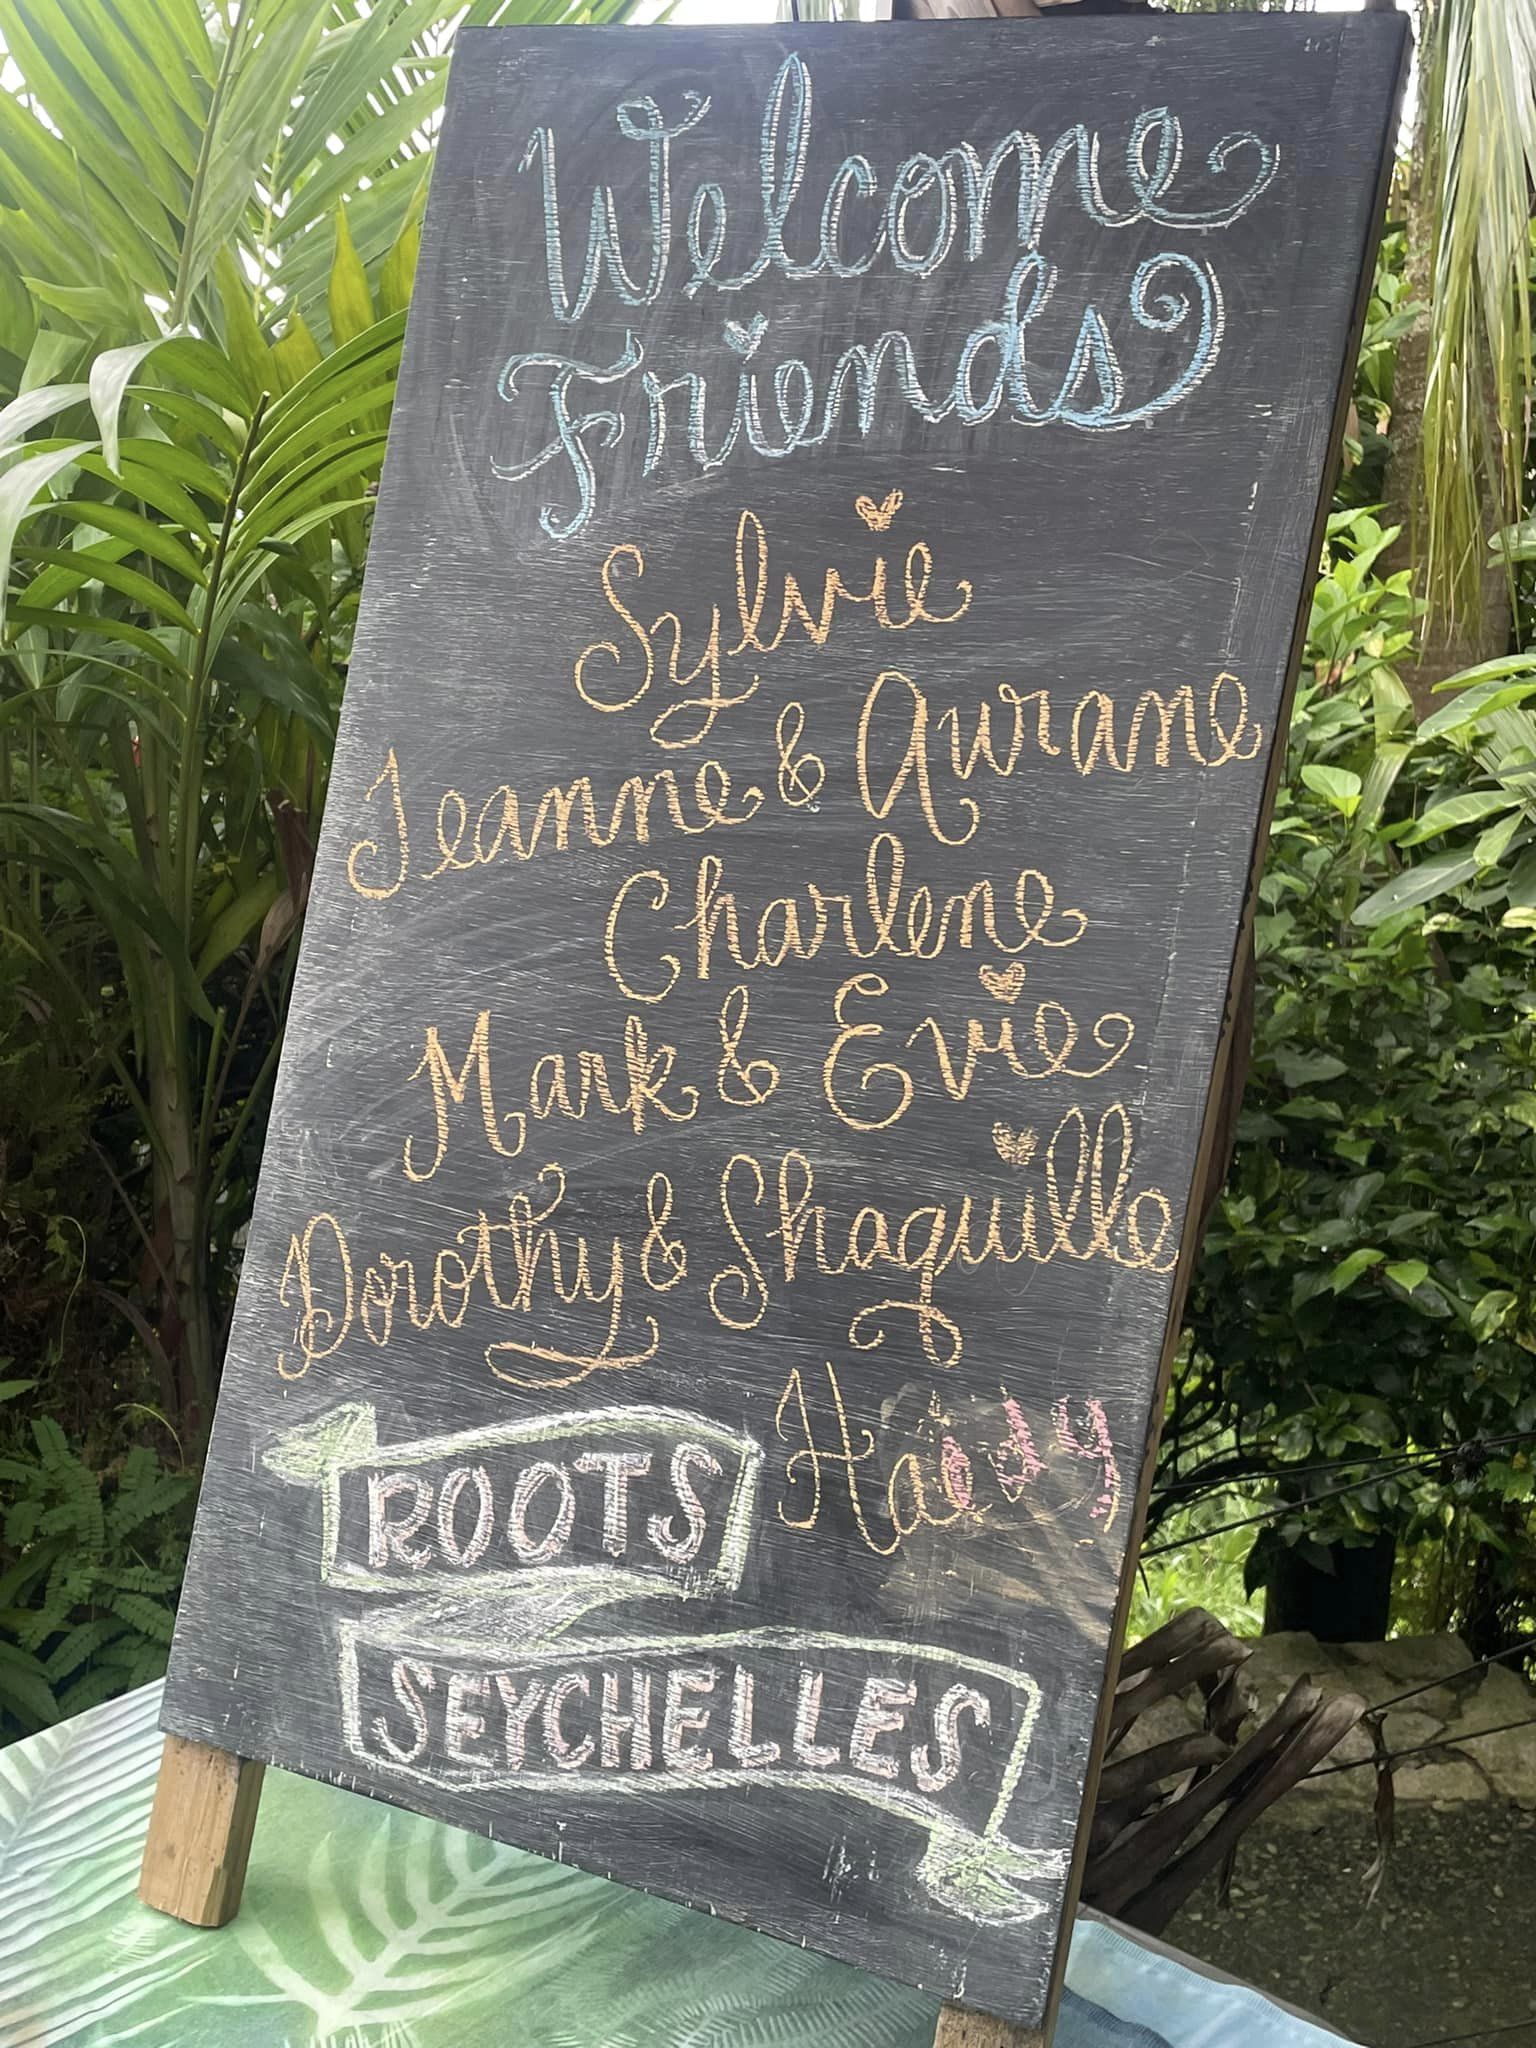 Welcome
Friends
Sylvie
Jeanne & Aurane
Charlene
Mark & Evie
Dorothy & Shaquille
ROOTS
SEYCHELLES